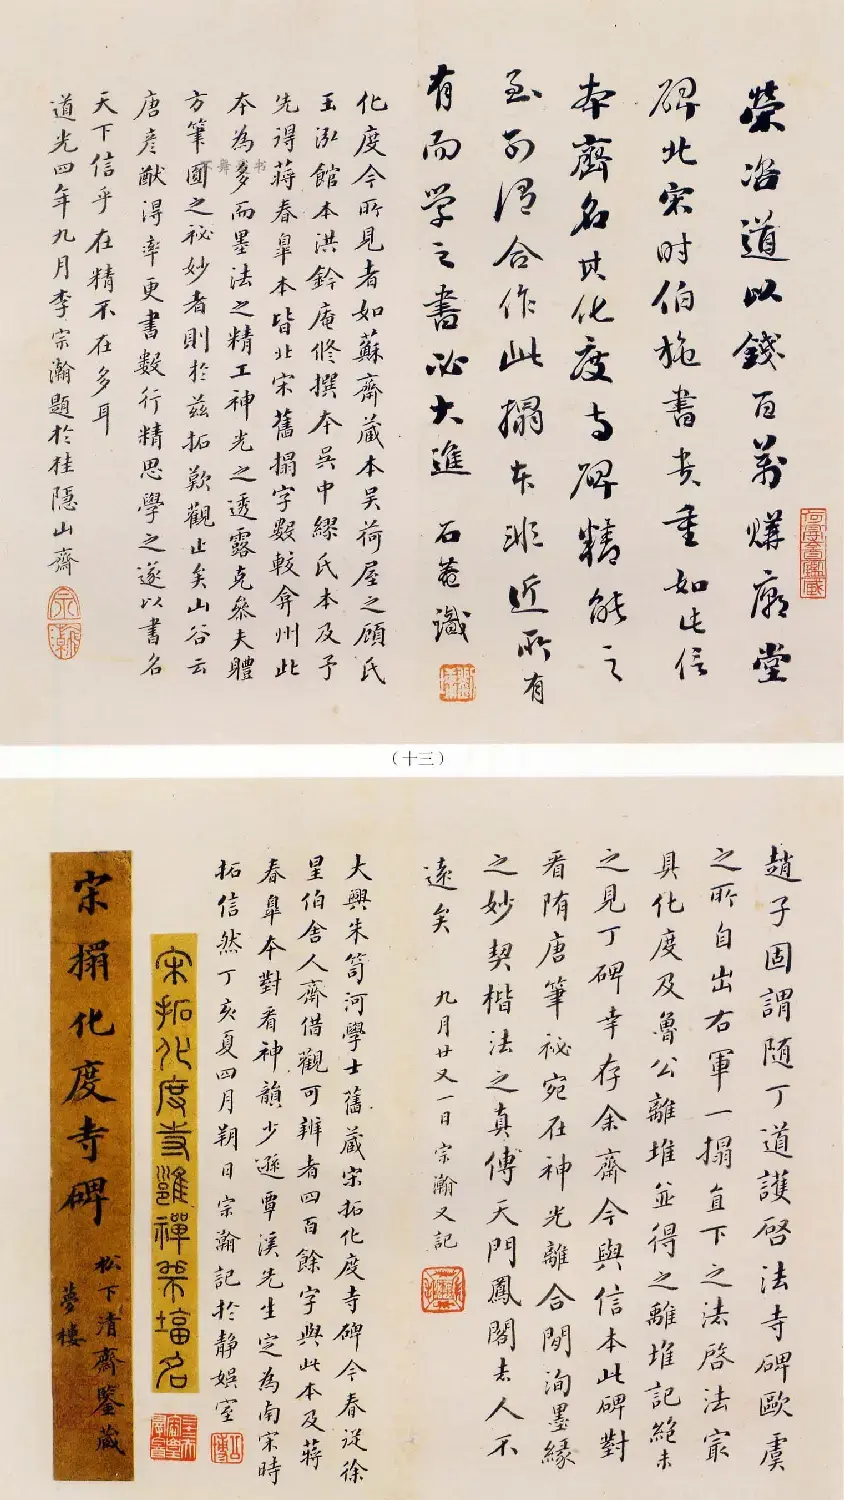 榮咨道以錢百萬購廟堂
碑北宋时伯施書貴重如此信
本齊名其化度寺碑精能之
至前得合作此搨本非近所有
有而学之書必大進 石菴識
化度今所見者如蘇齋藏本吴荷屋之顧氏
玉泓館本洪鈐庵修撰本吳中繆氏本及予
先得蔣春皐本皆北宋舊搨字數較弇州此
本為多而墨法之精工神光之透露克叅夫軆
方筆圓之祕妙者則於茲拓歎觀止矣山谷云
唐彦猷得率更書數行精思學之遂以書名
天下信乎在精不在多耳
道光四年九月李宗瀚題於桂隱山齋
宗瀚
（十三）
趙子固謂随丁道護啓法寺碑歐虞
之所自出右軍一搨直下之法啓法寂
具化度及魯公離堆並得之離堆記絶未
之見丁碑幸存余齋今與信本此碑對
看隋唐筆祕宛在神光離合間洵墨緣
之妙契楷法之真傳天門鳳閣去人不
遠矣 九月廿又一日宗瀚又記
大興朱笥河學士舊藏宋拓化度寺碑今春從徐
星伯舍人齋借觀可辨者四百餘字與此本及蔣
春皐本對看神韻少遜覃溪先生定為南宋時
拓信然丁亥夏四月朔日宗瀚記於靜娛室
宋拓化度寺邕禪師塔名
宋搨化度寺碑
松下清齋鑒藏
夢樓